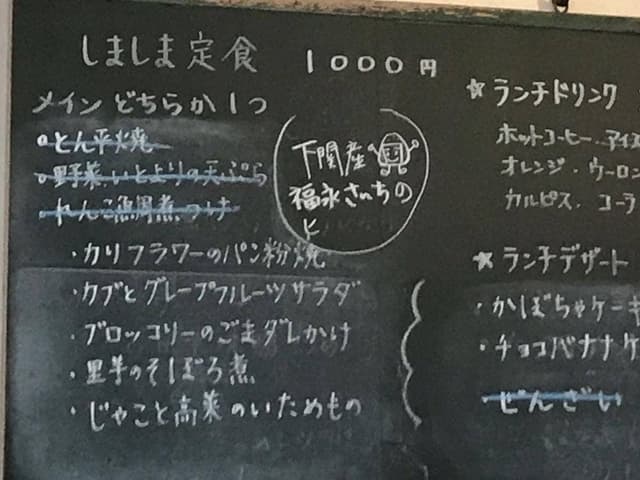 しましま定食 1000円
メイン どちらか1つ
とん平焼
野菜、いとよりの天ぷら
れんこ鯛煮つけ
下関産
福永さんちの
・カリフラワーのパン粉焼
・カブとグレープフルーツサラダ
・ブロッコリーのごまダレかけ
・里芋のそぼろ煮
・じゃこと高菜のいためもの
★ランチドリンク
ホットコーヒー・アイス
オレンジ・ウーロン
カルピス・コーラ
★ランチデザート
・かぼちゃケーキ
・チョコバナナケ
・ぜんざい